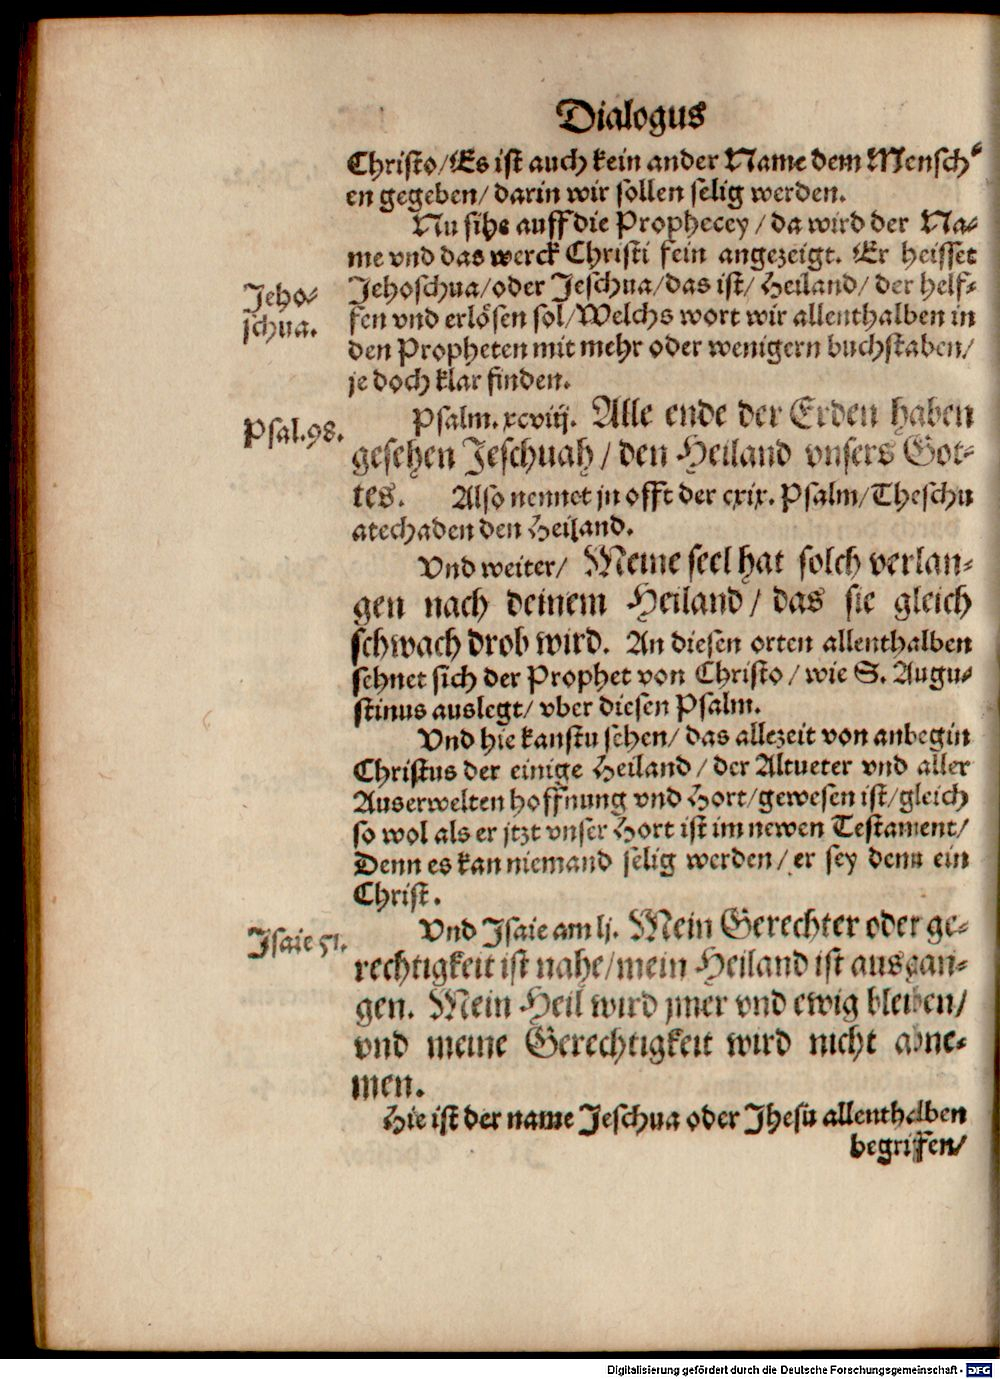 Dialogus
Christo/Es ist auch kein ander Name dem Mensch⸗
en gegeben/ darin wir sollen selig werden.
Nu sihe auff die Prophecey / da wird der Na⸗
me vnd das werck Christi fein angezeigt. Er heisset
Jeho⸗
schua.
Jehoschua/oder Jeschua/das ist/ Heiland/ der helf⸗
fen vnd erlösen sol/Welchs wort wir allenthalben in
den Propheten mit mehr oder wenigern buchstaben/
je doch klar finden.
Psal.98.
Psalm. xcviij. Alle ende der Erden haben
gesehen Jeschuah / den Heiland vnsers Got⸗
tes. Also nennet jn offt der cxix. Psalm/Theschu
atechaden den Heiland.
Vnd weiter/ Meine seel hat solch verlan⸗
gen nach deinem Heiland / das sie gleich
schwach drob wird. An diesen orten allenthalben
sehnet sich der Prophet von Christo / wie S. Augu⸗
stinus auslegt/ vber diesen Psalm.
Vnd hie kanstu sehen/ das allezeit von anbegin
Christus der einige Heiland / der Altueter vnd aller
Auserwelten hoffnung vnd Hort/gewesen ist/gleich
so wol als er jtzt vnser Hort ist im newen Testament/
Denn es kan niemand selig werden/er sey denn ein
Christ.
Jsaie 51.
Vnd Jsaie am lj. Mein Gerechter oder ge⸗
rechtigkeit ist nahe/mein Heiland ist ausgan⸗
gen. Mein Heil wird jmer vnd ewig bleiben/
vnd meine Gerechtigkeit wird nicht abne⸗
men.
Hie ist der name Jeschua oder Jhesu allenthalben
begriffen/
Digitalisierung gefördert durch die Deutsche Forschungsgemeinschaft - DFG